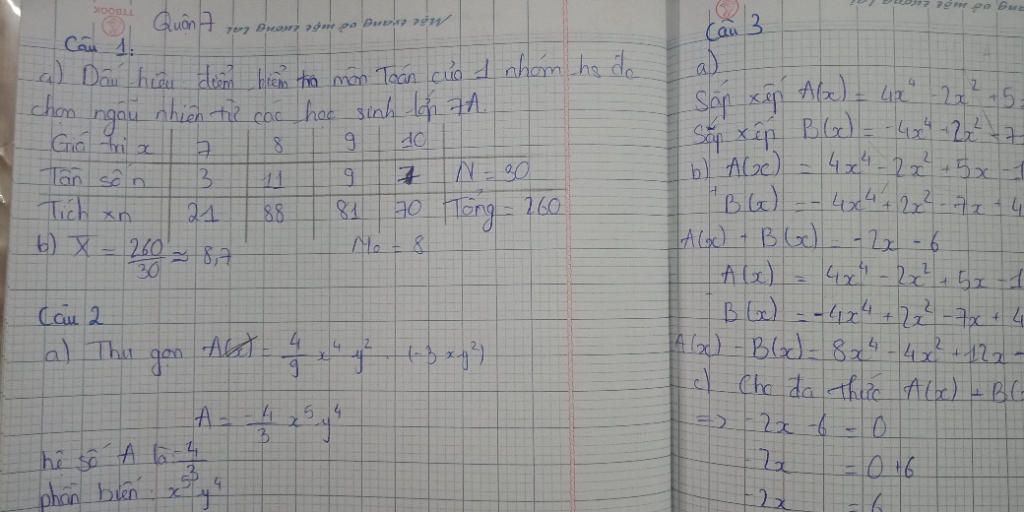 Quân 7
Câu 1:
a) Dấu hiệu điểm kiểm tra môn Toán của 1 nhóm hs đc
chọn ngẫu nhiên từ các học sinh lớp 7A.
Giá trị x 7 8 9 10
Tần số n 3 11 9 7 N = 30
Tích xn 21 88 81 70 Tổng = 260
b) X̄ = 260/30 ≈ 8,7 Mo = 8
Câu 2
a) Thu gọn A(x) = 4/9 x⁴ y² . (-3xy²)
A = -4/3 x⁵ y⁴
hệ số A là -4/3
phần biến: x⁵ y⁴
Câu 3
a)
Sắp xếp A(x) = 4x⁴ - 2x² + 5
Sắp xếp B(x) = -4x⁴ + 2x² - 7
b) A(x) = 4x⁴ - 2x² + 5x - 1
+ B(x) = -4x⁴ + 2x² - 7x + 4
A(x) + B(x) = -2x - 6
A(x) = 4x⁴ - 2x² + 5x - 1
- B(x) = -4x⁴ + 2x² - 7x + 4
A(x) - B(x) = 8x⁴ - 4x² + 12x -
c) Cho đa thức A(x) + B(
=> -2x - 6 = 0
-2x = 0 + 6
-2x = 6